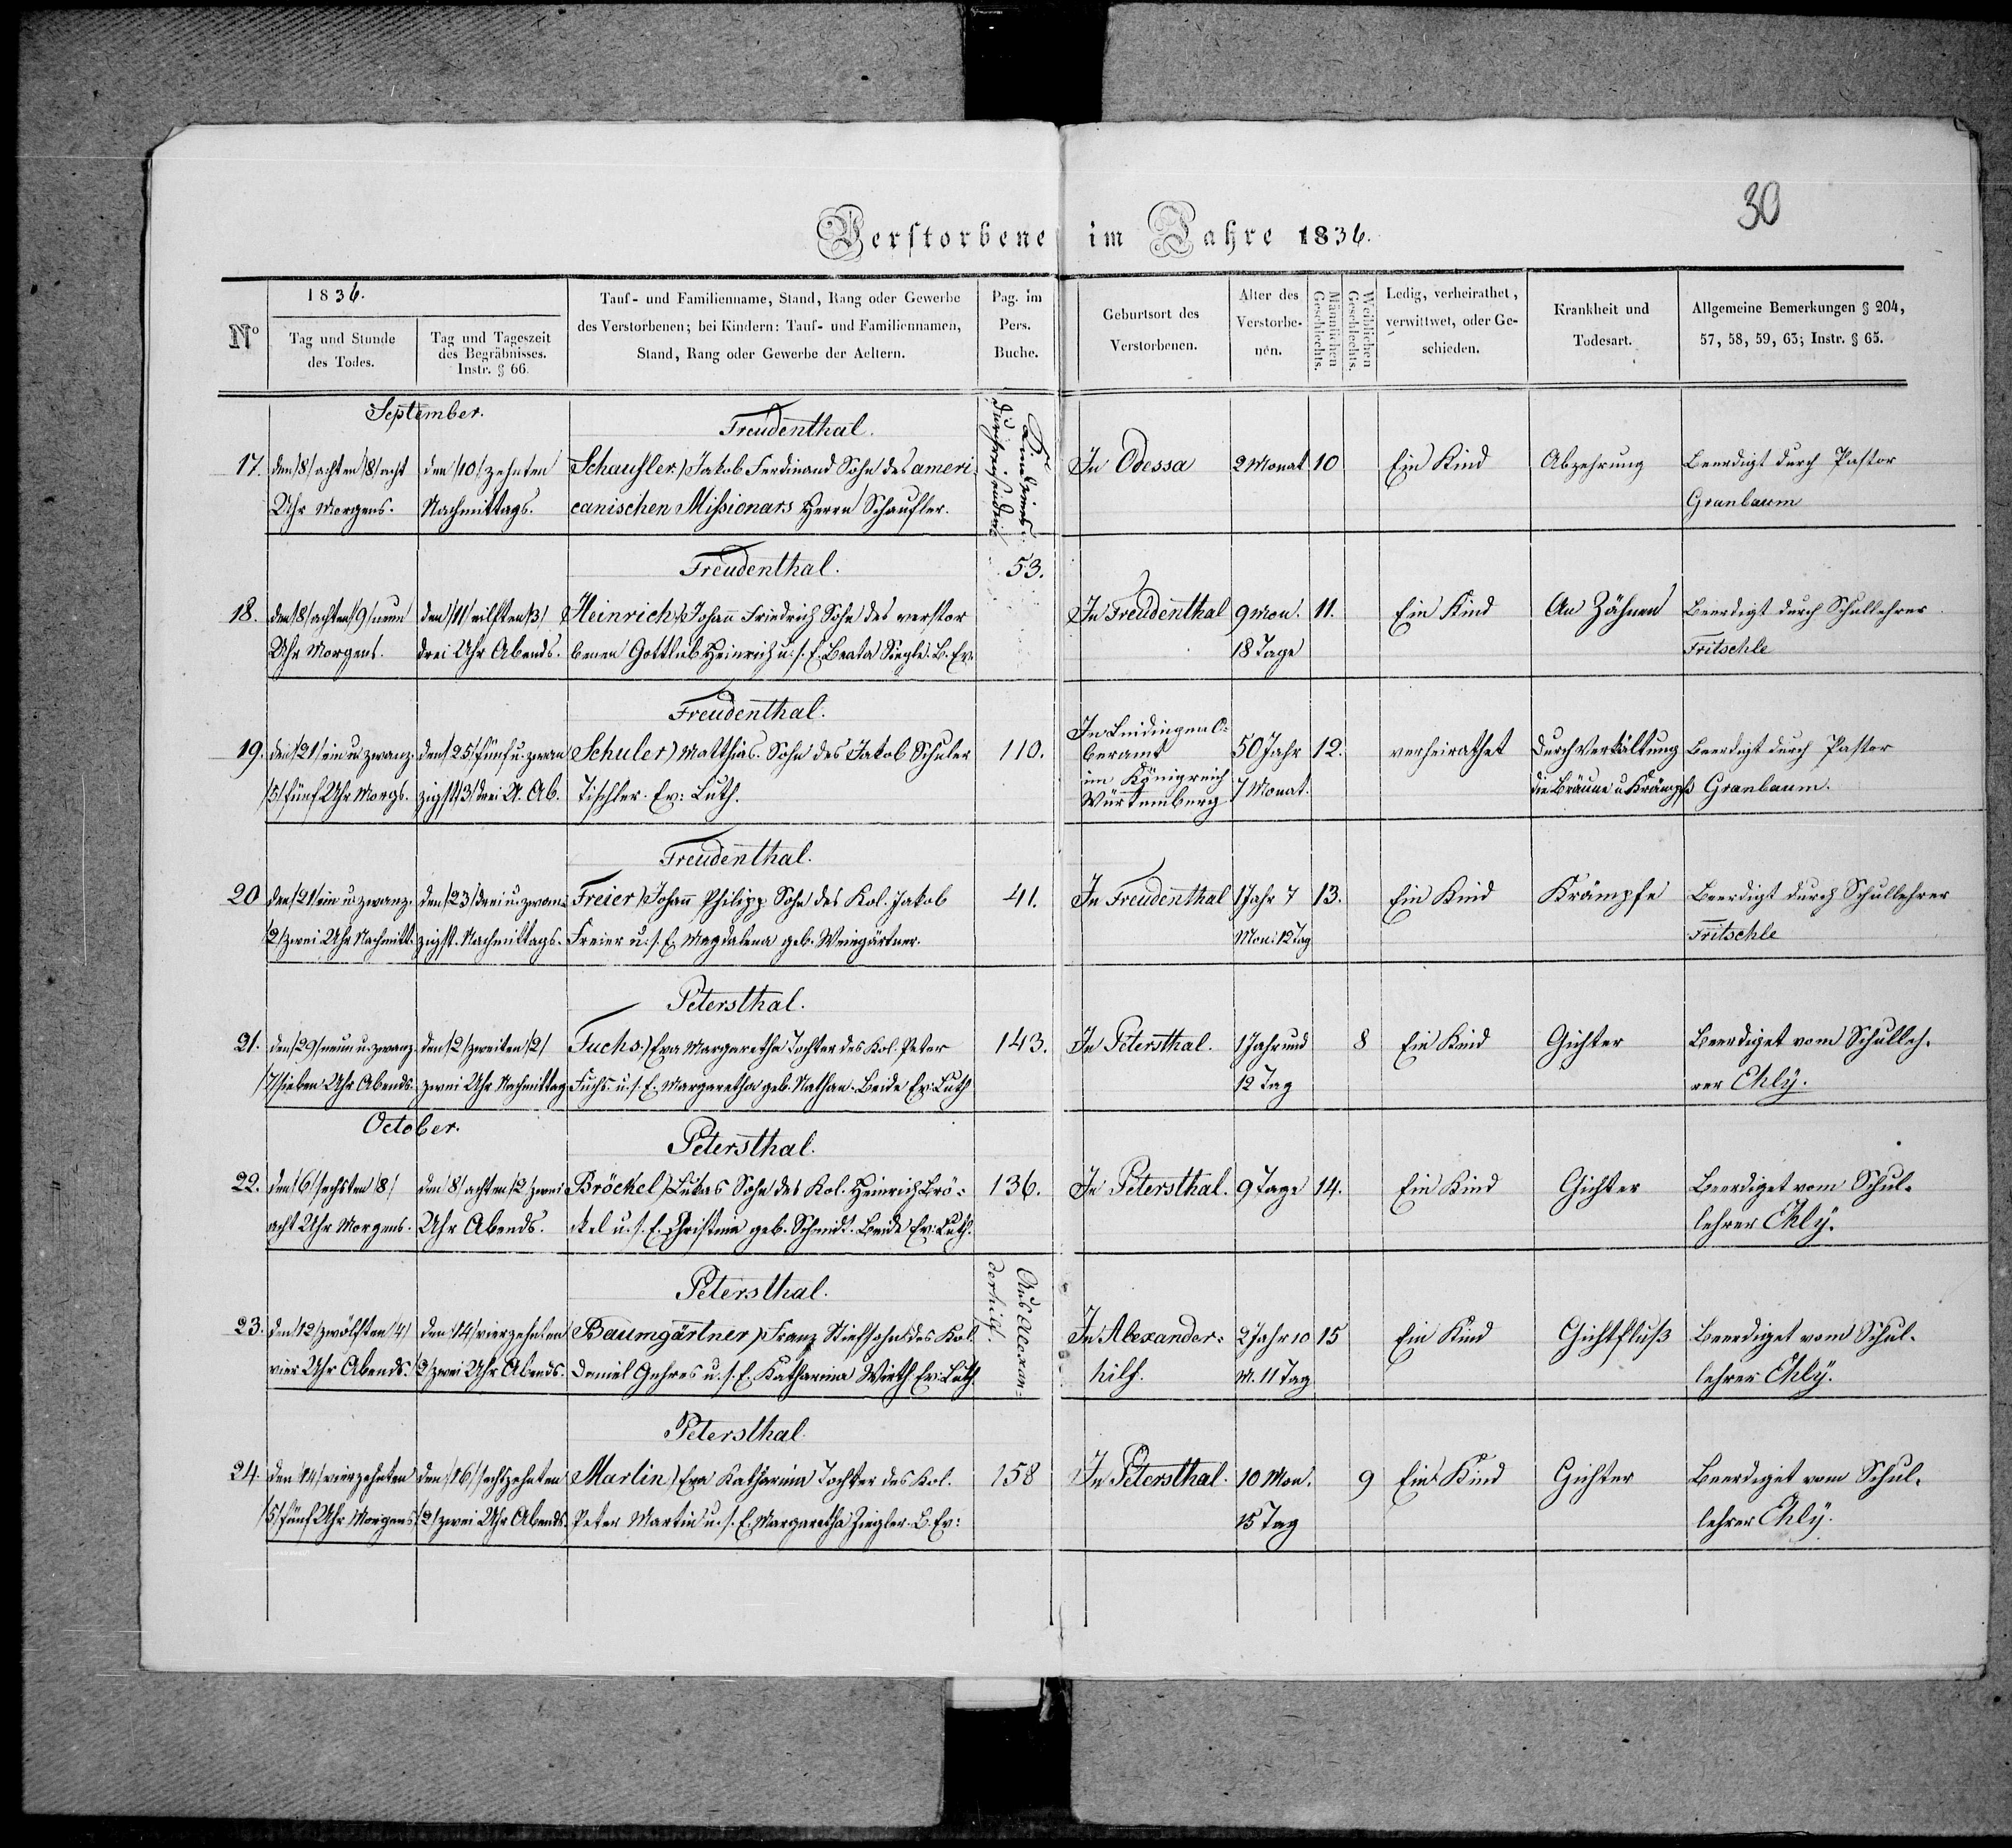 30
Verstorbene im Jahre 1836.
Nº
1836.
Tag und Stunde
des Todes.
Tag und Tageszeit
des Begräbnisses.
Instr. § 66.
Tauf- und Familienname, Stand, Rang oder Gewerbe
des Verstorbenen; bei Kindern: Tauf- und Familiennamen,
Stand, Rang oder Gewerbe der Aeltern.
Pag. im
Pers.
Buche.
Geburtsort des
Verstorbenen.
Alter des
Verstorbe-
nen.
Männlichen
Geschlechts.
Weiblichen
Geschlechts.
Ledig, verheirathet,
verwittwet, oder Ge-
schieden.
Krankheit und
Todesart.
Allgemeine Bemerkungen § 204,
57, 58, 59, 63; Instr. § 65.
September.
Freudenthal.
17. den /8/ achten /8/ acht den /10/ zehnten Schaufler) Jakob Ferdinand Sohn des ameri- In Odessa 2 Monat 10 Ein Kind Abzehrung Beerdigt durch Pastor
Uhr Morgens. Nachmittags. canischen Missionars Herrn Schaufler. Granbaum
Freudenthal. 53.
18. den /8/ achten /9/ neun den /11/ eilften /3/ Heinrich) Johann Friedrich Sohn des verstor In Freudenthal 9 Mon. 11. Ein Kind An Zähnen Beerdigt durch Schullehrer
Uhr Morgens. drei Uhr Abends. benen Gottlieb Heinrich u. s. E. Beata Siegle. B. Ev. 18 Tage Fritschle
Freudenthal.
19. den /21/ ein u. zwanz. den /25/ fünf u. zwan Schuler) Matthias. Sohn des Jakob Schuler 110. In O- beramt 50 Jahr 12. verheirathet Durch Verkältung Beerdigt durch Pastor
/5/ fünf Uhr Morgs. zigst /3/ drei U. Ab. Tischler. Ev: Luth. im Königreich Würtemberg 7 Monat. die Bräune u. Krämpfe Granbaum.
Freudenthal.
20 den /21/ ein u. zwanz. den /23/ drei u. zwan- Freier) Johann Philipp Sohn des Kol. Jakob 41. In Freudenthal 1 Jahr 7 13. Ein Kind Krämpfe Beerdigt durch Schullehrer
/2/ zwei Uhr Nachmitt. zigst. Nachmittags. Freier u. s. E. Magdalena geb. Weingärtner. Mon: 12 Tag Fritschle
Petersthal.
21. den /29/ neun u. zwanz. den /2/ zweiten /2/ Fuchs.) Eva Margaretha Tochter des Kol. Peter 143. In Petersthal. 1 Jahr und 8 Ein Kind Gichter Beerdiget vom Schulleh-
/7/ sieben Uhr Abends. zwei Uhr Nachmittag Fuchs u. s. E. Margaretha geb. Nathan. Beide Ev: Luth 12 Tag rer Ehly.
October.
Petersthal.
22. den /6/ sechsten /8/ den /8/ achten /2/ zwei Bröckel) Lukas Sohn des Kol. Heinrich Brö- 136. In Petersthal. 9 Tage 14. Ein Kind Gichter Beerdiget vom Schul-
acht Uhr Morgens. Uhr Abends. ckel u. s. E. Christina geb. Schmidt. Beide Ev: Luth. lehrer Ehly.
Petersthal. Aus Alexan-
derhilf.
23. den /12/ zwölften /4/ den /14/ vierzehnten Baumgärtner) Franz Stiefsohn des Kol. In Alexander- 2 Jahr 10 15 Ein Kind Gichtfluß Beerdiget vom Schul-
vier Uhr Abends. /2/ zwei Uhr Abends. Daniel Gehres u. s. E. Katharina Wirth Ev: Luth. hilf. M. 11 Tag lehrer Ehly.
Petersthal
24. den /14/ vierzehnten den /16/ sechszehnten Martin) Eva Katharina Tochter des Kol. 158 In Petersthal. 10 Mon. 9 Ein Kind Gichter Beerdiget vom Schul-
/5/ fünf Uhr Morgens /2/ zwei Uhr Abends. Peter Martin u. s. E. Margaretha Ziegler. B. Ev: 15 Tag lehrer Ehly.